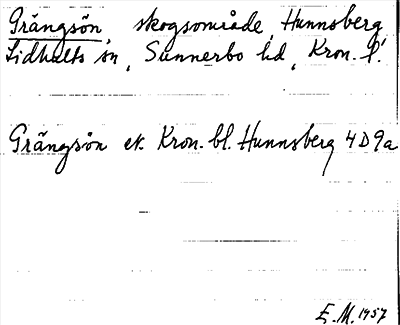 Grängsön, skogsområde, Hunnsberg,
Lidhults sn, Sunnerbo hd, Kron. l.
Grängsön ek. Kron. bl. Hunnsberg 4D9a
E. M. 1957